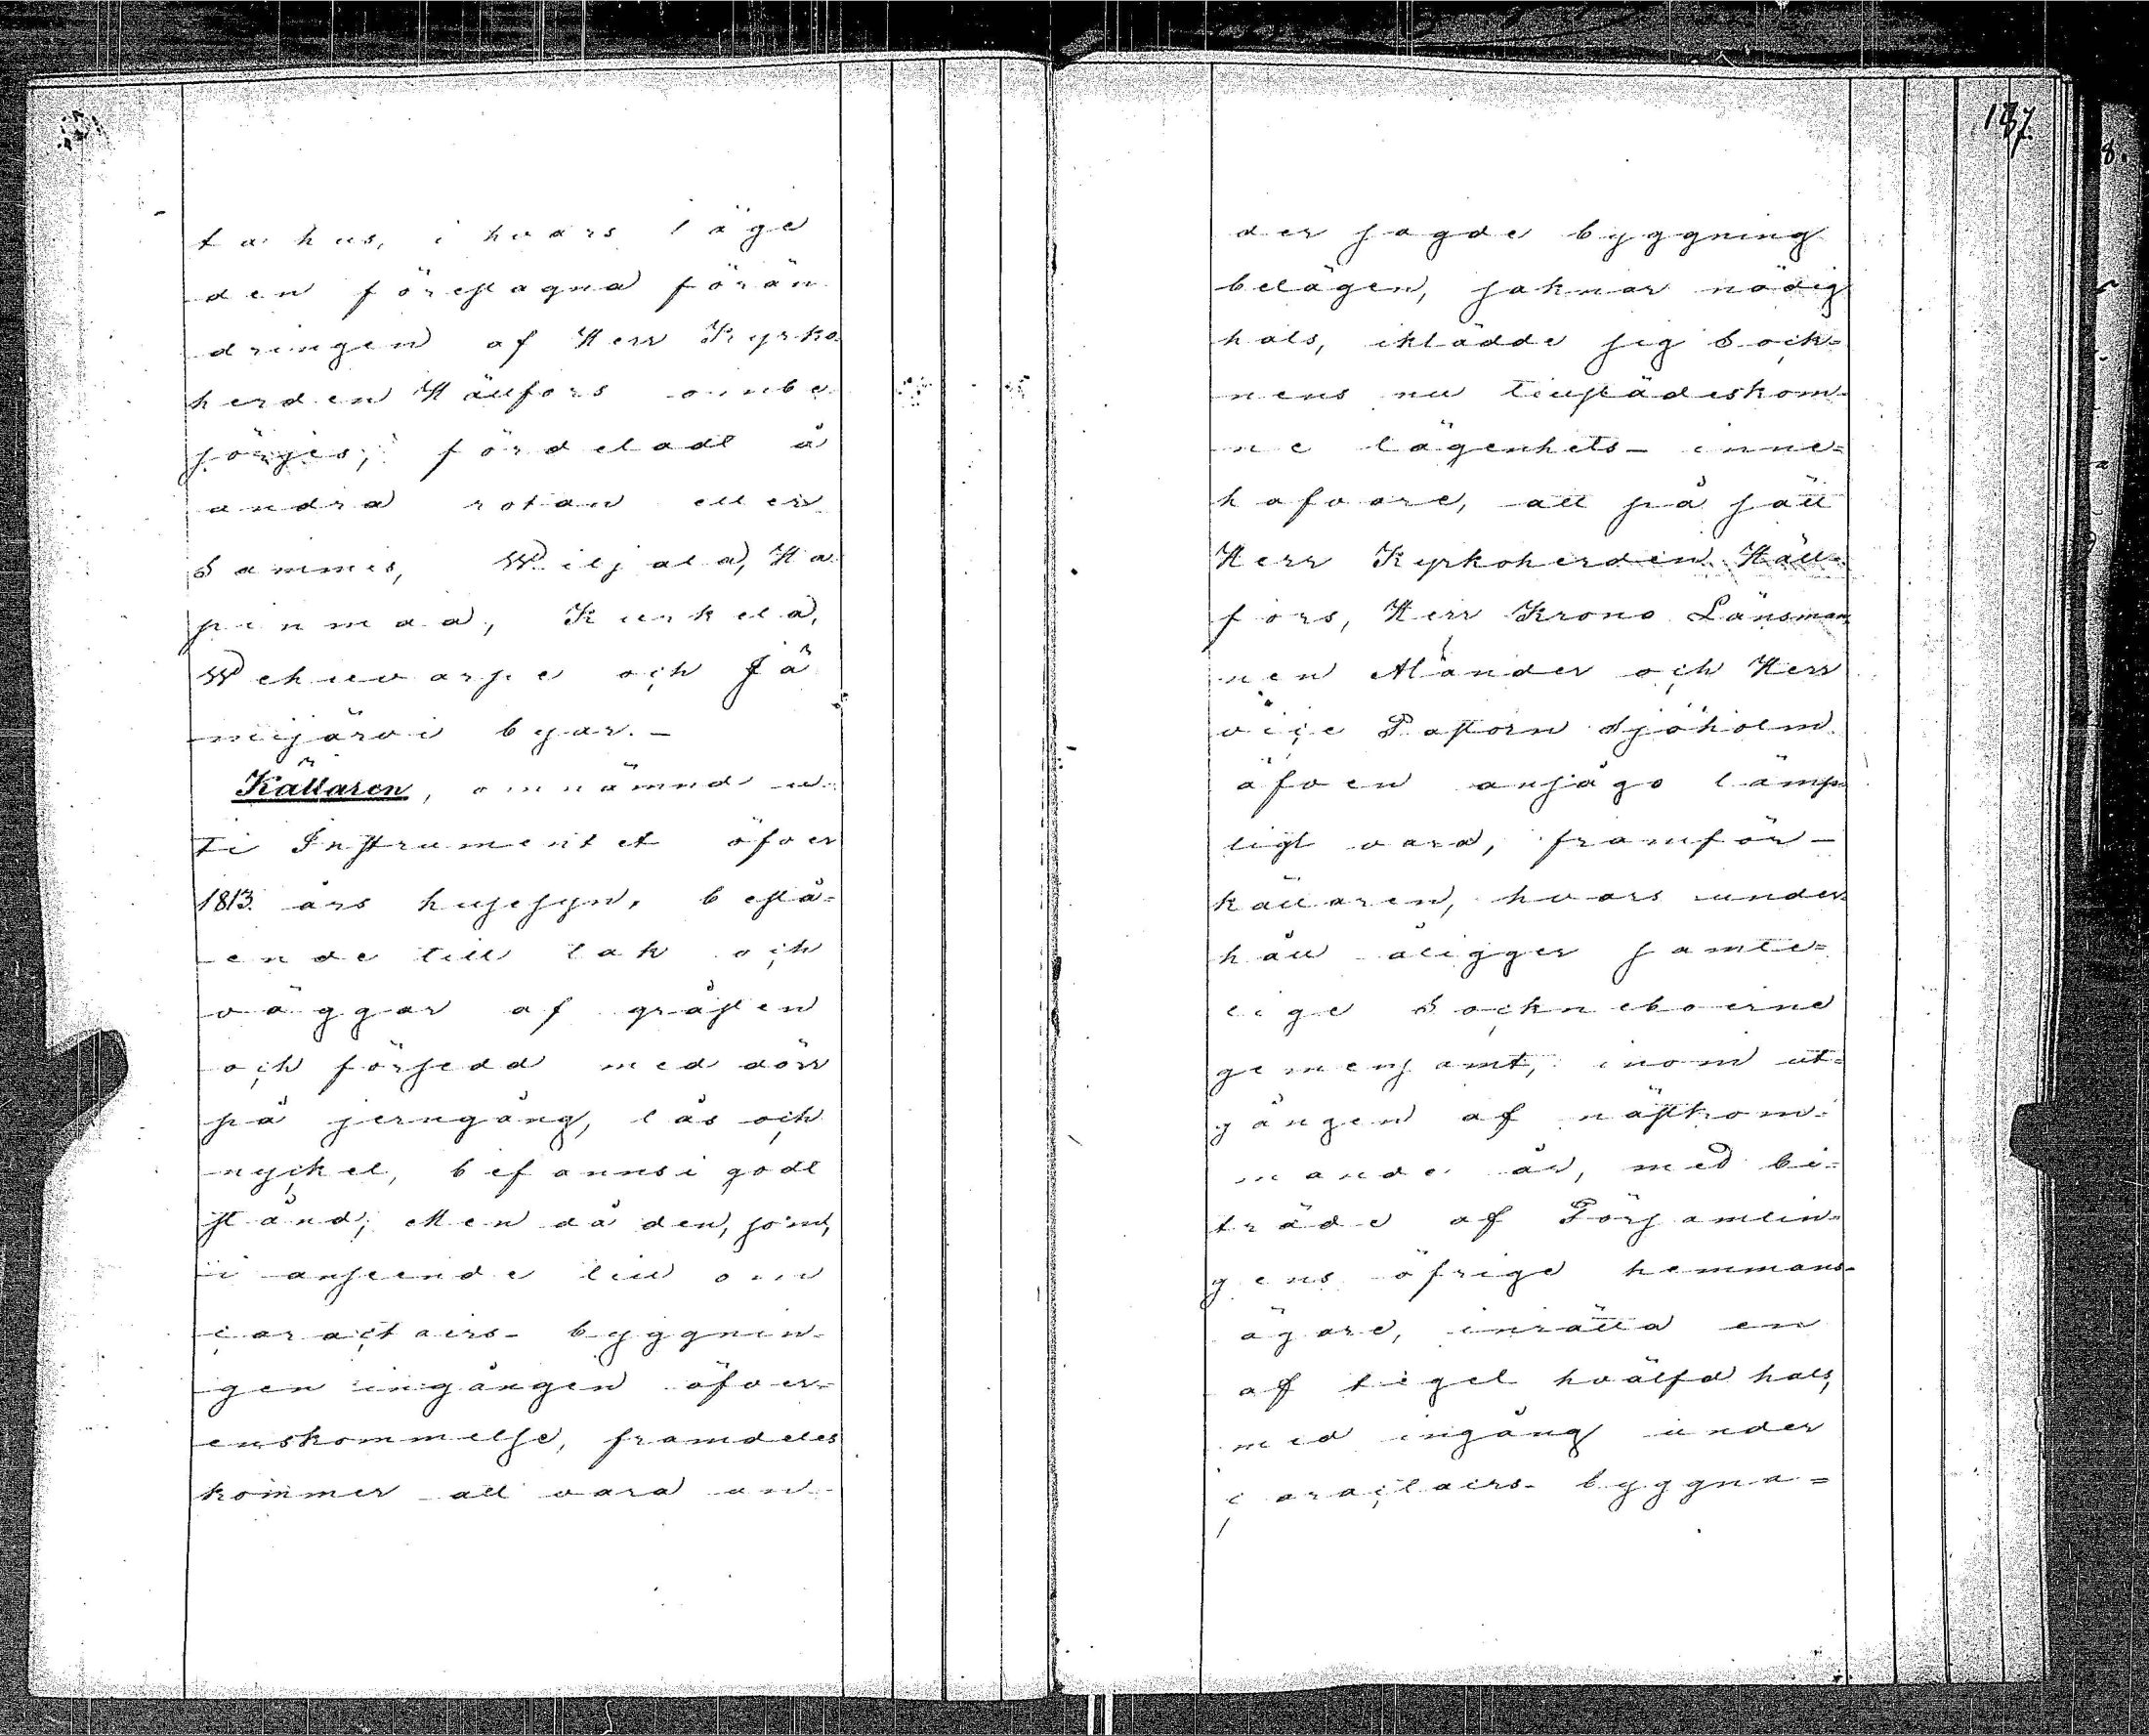 ta hus, i hvars läge
den föreslagna förän
dringen af Herr Kyrko
herden Hällfors ombe
sörjes, fördeladt å
andra rotan eller
Sammis, Wiljala, Ha
pinmaa, Kurkela,
Wehuvarpe och Jä
mijärvi byar. –
Källaren, omnämnd u
ti Instrumentet öfver
1813 års husesyn, bestå=
ende till tak och
väggar af gråsten
och försedd med dörr
på jerngång, lås och
nyckel, befanns i godt
stånd; Men då den, som,
i anseende till om
caractairs- byggnin
gen ingången öfver=
enskommelse, framdeles
kommer att vara un
187.
der sagde byggning
belägen, saknar nödig
hals, iklädde sig Sock=
nens nu tillstädeskom
ne lägenhets- inne=
hafvare, att på sätt
Herr Kyrkoherden Häll=
fors, Herr Krono Länsman
nen Alander och Herr
vice Pastorn Sjöholm
äfven ansågo lämp
ligt vara, framför –
källaren, hvars under
håll åligger samte=
lige Sockneboerne
gemensamt, inom ut=
gången af nästkom=
mande år, med bi=
träde af Församlin=
gens öfrige hemmans-
ägare, inrätta en
af tegel hvälfd hals,
med ingång under
caractairs- byggna=
8.